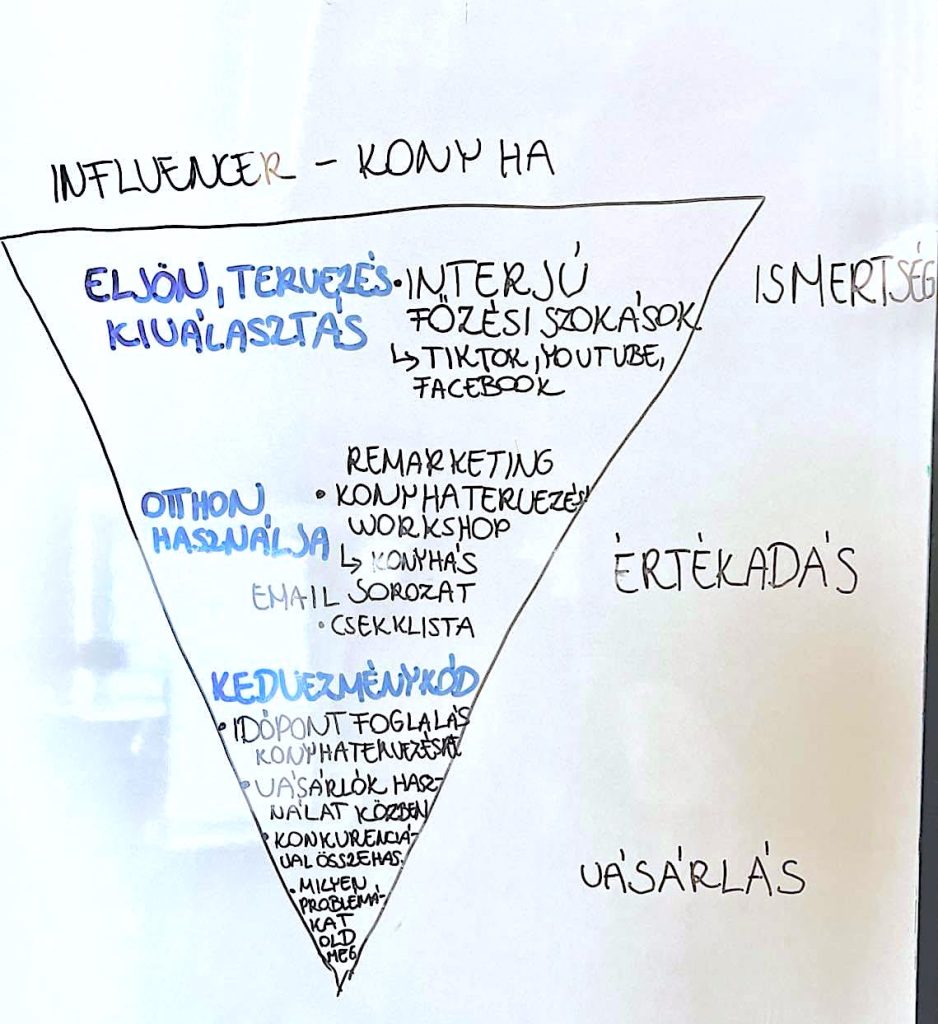 INFLUENCER - KONYHA
ELJÖN, TERVEZÉS
KIVÁLASZTÁS
• INTERJÚ
FŐZÉSI SZOKÁSOK
↳ TIKTOK, YOUTUBE,
FACEBOOK
ISMERTSÉG
OTTHON,
HASZNÁLJA
REMARKETING
• KONYHATERVEZÉSI
WORKSHOP
↳ KONYHÁS
EMAIL SOROZAT
• CSEKKLISTA
ÉRTÉKADÁS
KEDVEZMÉNYKÓD
• IDŐPONT FOGLALÁS
KONYHATERVEZÉSRE
• VÁSÁRLÓK HASZ-
NÁLAT KÖZBEN
• KONKURENCIÁ-
VAL ÖSSZEHAS.
• MILYEN
PROBLÉMÁ-
KAT
OLD
MEG
VÁSÁRLÁS